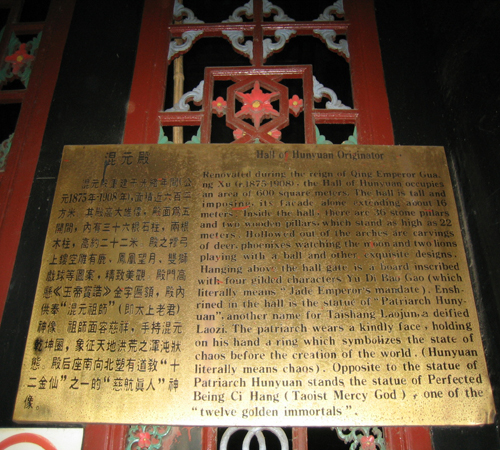 混元殿
混元殿重建于光绪年间(公
元1875年-1908年),面积达六百平
方米。其殿高大雄伟,殿面宽五
開間,内有三十六根石柱,兩根
木柱,高约二十二米。殿之拱弓
上镂空雕有鹿、鳳凰望月、雙獅
戲球等圖案,精致美觀。殿門高
懸《玉帝寶誥》金字匾额,殿内
供奉“混元祖師”(即太上老君)
神像。祖師面容慈祥,手持混元
乾坤圈,象征天地洪荒之渾沌狀
態。殿后座南向北塑有道致“十
二金仙”之一的“慈航真人”神
像。
Hall of Hunyuan Originator
Renovated during the reign of Qing Emperor Gua
ng Xu (1875-1908), the Hall of Hunyuan occupies
an area of 600 square meters. The hall is tall and
imposing, its facade alone extending about 16
meters. Inside the hall, there are 36 stone pillars
and two wooden pillars, which stand as high as 22
meters. Hollowed out of the arches are carvings
of deer, phoenixes watching the moon and two lions
playing with a ball and other exquisite designs.
Hanging above the hall gate is a board inscribed
with four gilded characters, Yu Di Bao Gao (which
literally means "Jade Emperor's mandate). Ensh-
rined in the hall is the statue of "Patriarch Huny-
uan", another name for Taishang Laojun, a deified
Laozi. The patriarch wears a kindly face, holding
on his hand a ring which symbolizes the state of
chaos before the creation of the world. (Hunyuan
literally means chaos). Opposite to the statue of
Patriarch Hunyuan stands the statue of Perfected
Being Ci Hang (Taoist Mercy God), one of the
"twelve golden immortals".